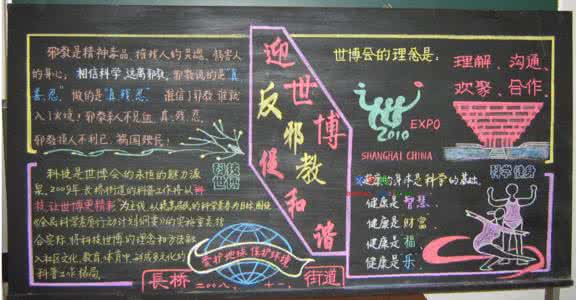 邪教是精神毒品,摧残人的灵魂,伤害人
的身心,相信科学,远离邪教。邪教说的是“真
善忍”做的是“真残忍”
入火坑!邪教杀人不见血,真残忍
邪教损人不利己,祸国殃民!
科技是世博会的永恒的魅力源
泉。2009年长桥街道的科普工作将以科
技让世博更精彩为主线,以提高居民的科学素养为目标,围绕
《全民科学素质行动计划纲要》的实施
合实际,将科技世博的理念和方法融
入社区文化、教育、体育中,形成多元化的
科普工作格局。
科技
世博
爱护地球 保护环境
长桥 二00八、十一 街道
迎世博
反邪教
促和谐
世博会的理念是:
理解、沟通、
欢聚、合作。
2010
EXPO
SHANGHAI CHINA
科学健身
健康的身体是科学的基础。
健康是智慧、
健康是财富、
健康是福、
健康是乐。